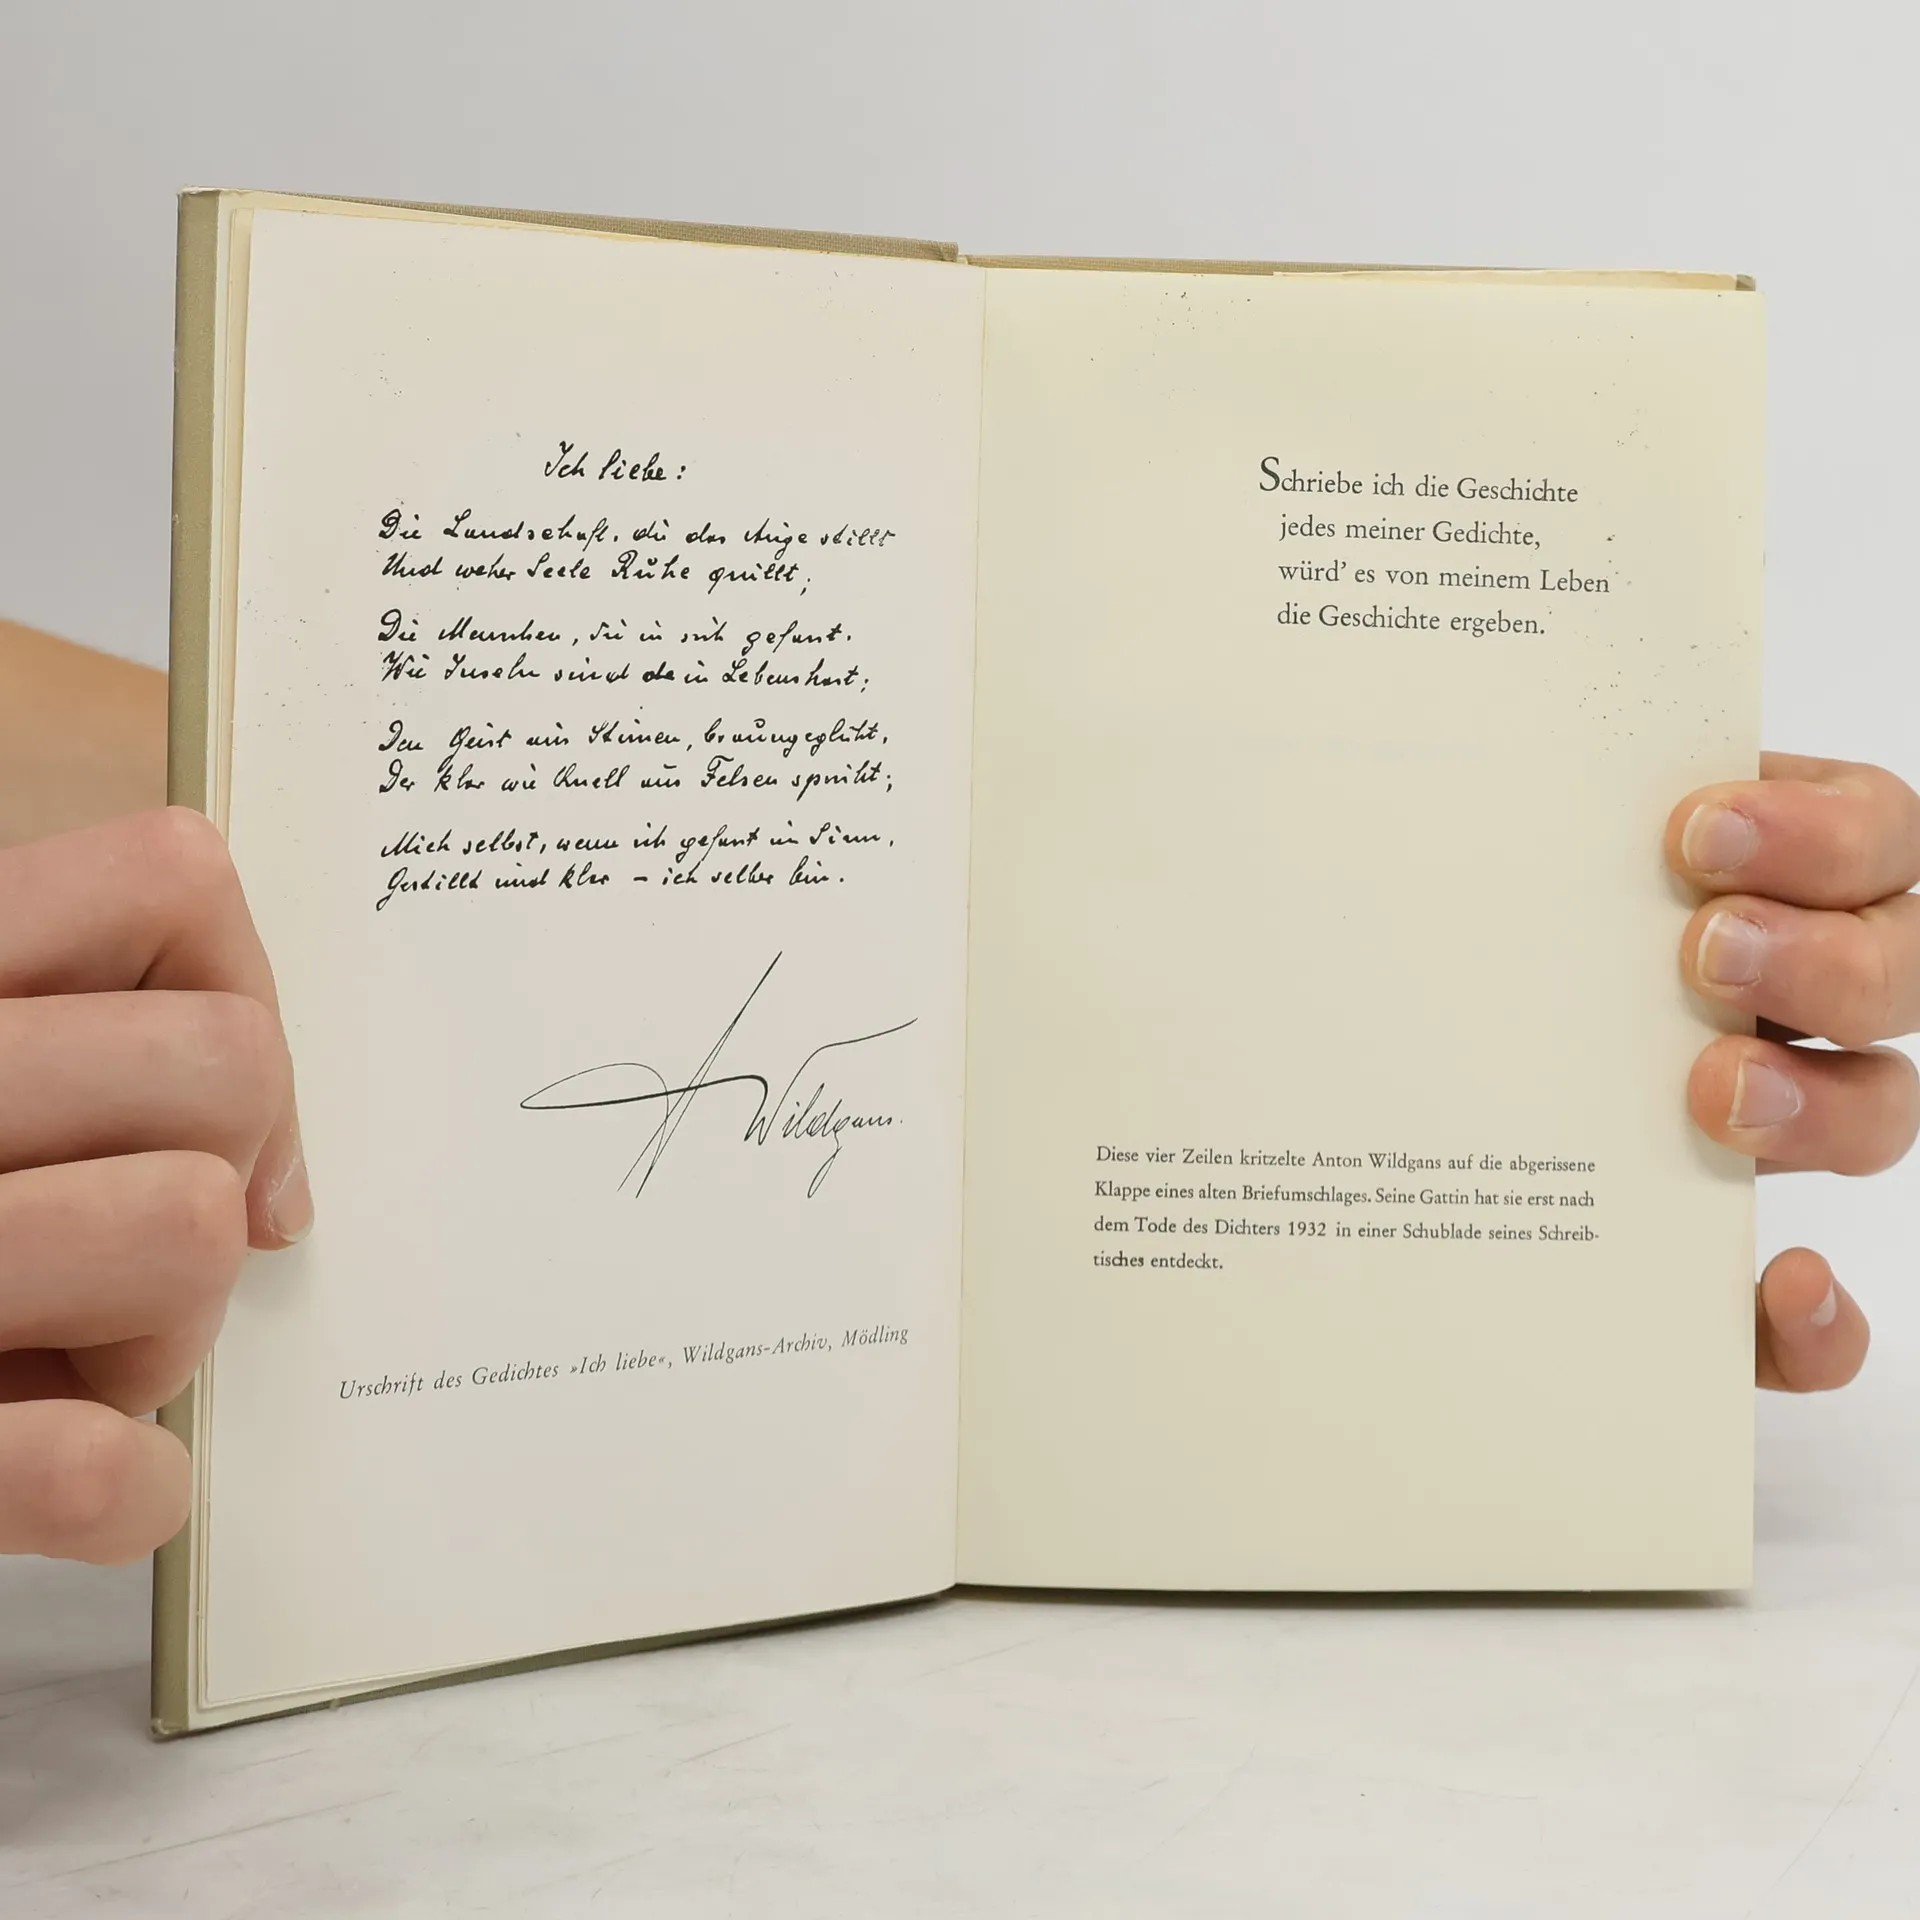 Ich liebe:
Die Landschaft, die das Auge stillt
Und weher Seele Ruhe quillt;
Die Menschen, die in sich gefasst.
Wie Inseln sind da in Lebenshast;
Den Geist aus Stirnen, braungeglüht,
Der klar wie Quell aus Felsen sprüht;
Mich selbst, wenn ich gefasst im Sinn,
Gestillt und klar – ich selber bin.
A Wildgans.
Urschrift des Gedichtes »Ich liebe«, Wildgans-Archiv, Mödling
Schriebe ich die Geschichte
jedes meiner Gedichte,
würd' es von meinem Leben
die Geschichte ergeben.
Diese vier Zeilen kritzelte Anton Wildgans auf die abgerissene
Klappe eines alten Briefumschlages. Seine Gattin hat sie erst nach
dem Tode des Dichters 1932 in einer Schublade seines Schreib-
tisches entdeckt.